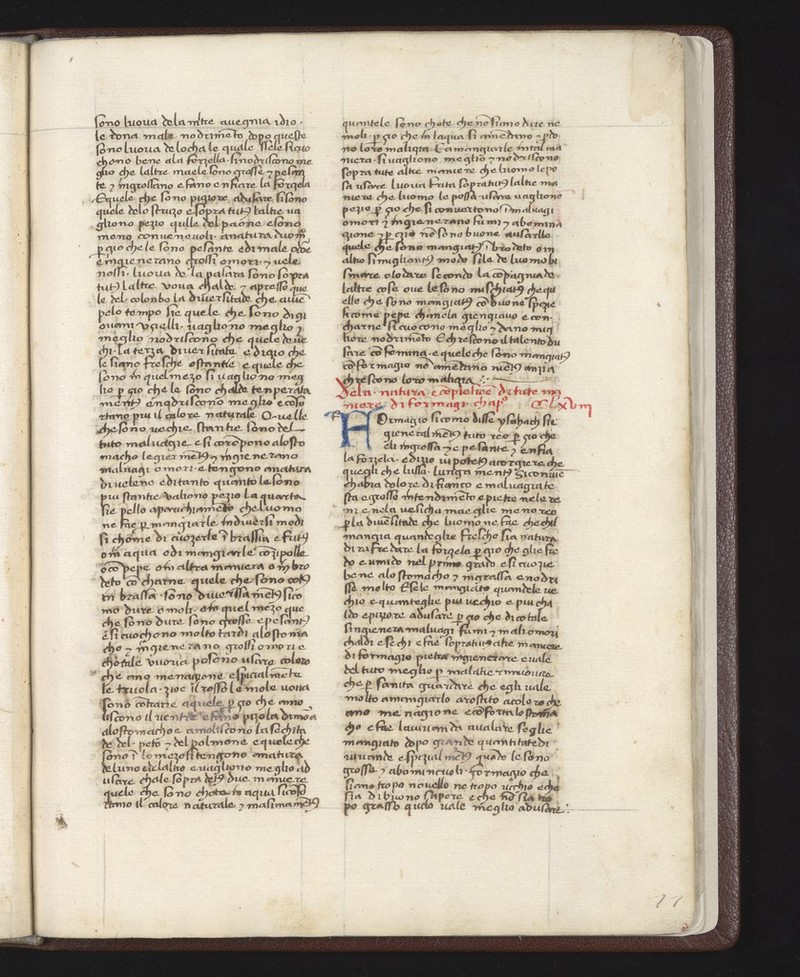 sono luoua dela nr̃e auegnia idio.
le dona malu nodrimẽto dopo queste
sono luoua de locha le quale ssele si quo
chono bene ala forzella. si nodriscono me
glio che laltre maele sono grosse ⁊ pesan
te ⁊ ingrossano e fano enfiare la forzela
Equele che sono pigiore adusare si sono
quele delo struzo e sopra tutj laltre ua
gliono pezio quelle del paone e sono
meno conueneuoli. anatura
ꝑ cio che le sono pesante edi male
e ingienerano grossi omori. ⁊ uele
nossi. luoua de la pasara sono sopra
tutj laltre voua chalde ⁊ apresso que
le del colonbo la diuersitade che aue
pelo tempo sie quele che sono digi
ouani ugielli. uagliono meglio ⁊
meglio nodriscono che quele de ue
chi. la terza diuersitate. e dizio che
le siano fresche o stantie e quele che
sono in quel mezo si uagliono meg
lio ꝑ cio che le sono chalde tenperata
mentj enodriscono meglio e cofo
rtano piu il calore naturale. Quelle
che sono uechie. stantie sono del
tuto maluagie e si coronpono alosto
macho legier mẽtj ⁊ ingienerano
maluagi omori e tengono anatura
di ueleno editanto quanto le sono
piu stantie ualiono pezio la quarta
sie pello aparuchiamẽto che luomo
ne fae ꝑ mangiarle in diuersi modi
si chome di cuozerle ĩ brassia e frite
o in aqua o di mangiarle cõ zipolle
o cõ pepe o in altra maniera o in bro
deto cõ charne quele che sono cotj
in brassa. sono diuerssa mẽtj sico
mo dure o moli. o in quel mezo que
che sono dure sono grosse e pesantj
e si cuochono molto tardi alo stoma
cho ⁊ ingienerano grossi omori e
chotale vuoua posono usare coloro
che ano menagione espicialmẽte
le truola. zioe il rosso le mole uoua
sono cotrarie aquele ꝑ cio che amo
liscono il uentre e fano
alo stomacho e amoliscono la sechita
de del. peto ⁊ del polmone e quele che
sono ĩ lo mezo si tengono anatura
de luno edelaltro e uagliono meglio ad
usare chale sopra detj due maniere
quele che sono chote in aqua sicofo
rtano il calore naturale ⁊ masimamẽtj
quantele sono chote. che nõ siano dure ne
moli. ꝑ cio che in laqua si amedano ⁊ ꝑdo
no loro maliqta. E amangiarle in tal ma
niera. si uagliono meglio ⁊ nodriscono
sopra tute altre maniere che luomo le po
sa usare luoua frita sopratutj laltre ma
niere che luomo le possa usare uagliono
pezio ꝑ cio che si conuertono ĩ maluagi
omori ⁊ ingienerano fumi ⁊ abomina
zione ⁊ ꝑ cio nõ sono buone ausarlle
quele che sono mangiatj ĩ brodeto o in
altro simigliantj modo si le de luomo bi
simare olodare secondo la copagniade
laltre cose oue le sono mischiatj che qu
elle che sono mangiatj cõ buone spezie
sicome pepe chanela giengiauo e con.
charne si cuocono meglio ⁊ dano mig
liore nodrimẽto E chrescono il talento du
sare cõ femina. e quele che sono mangiatj
cõ formagio no amedano niẽtj anzia
chrescono loro maliqta .:.
Dela. natura e coplesione di tute ma
niere. di formagi. chapo CLXVIII
Formagio sicomo disse ysahach sie
gieneral mẽtj tuto reo ꝑ cio che
eli ingrossa ⁊ e pesante ⁊ enfia
la forzela. edizio uꝰ potetj acorgiere che
quegli che lussa. lunga mentj zi conuie
chabia dolore di fianco e maluagitate
sta e grosso intendimẽto e pietre nele re
ni e nela uesicha mae glie meno reo
ꝑ la diuersitade che luomo ne fae che chil
mangia quande glie fresche sia natura.
di rafredare la forzela ꝑ cio che glie fre
do e umido nel primo grado e si cuoze
bene alo stomacho ⁊ ingrassa e nodri
sse molto Esele mangiato quandele ue
chio e quante glie piu uechio e piu cha
ldo epizore adusare ꝑ cio che di cotale
singienera maluagi fumi ⁊ mali omori
chaldi e sechi e fae sopratutj altre maniere
di formagio pietra ingienerare e uale
del tuto meglio ꝑ malatie rimouere
che ꝑ sanita guardare che egli uale
molto amangiarlo arostito acoloro che
ano menagione. e cõforta lo stoma
cho e fae lauiuanda aualare se glie
mangiato dopo grande quantitate di
uiuande e spizial mẽtj quãdo le sono
grosse ⁊ abomineuoli. formagio che
siano tropo nouello ne tropo uechio e che
sia di buono sapore e che nõ sia tro
po grasso quelo uale meglio adusare.:.
77